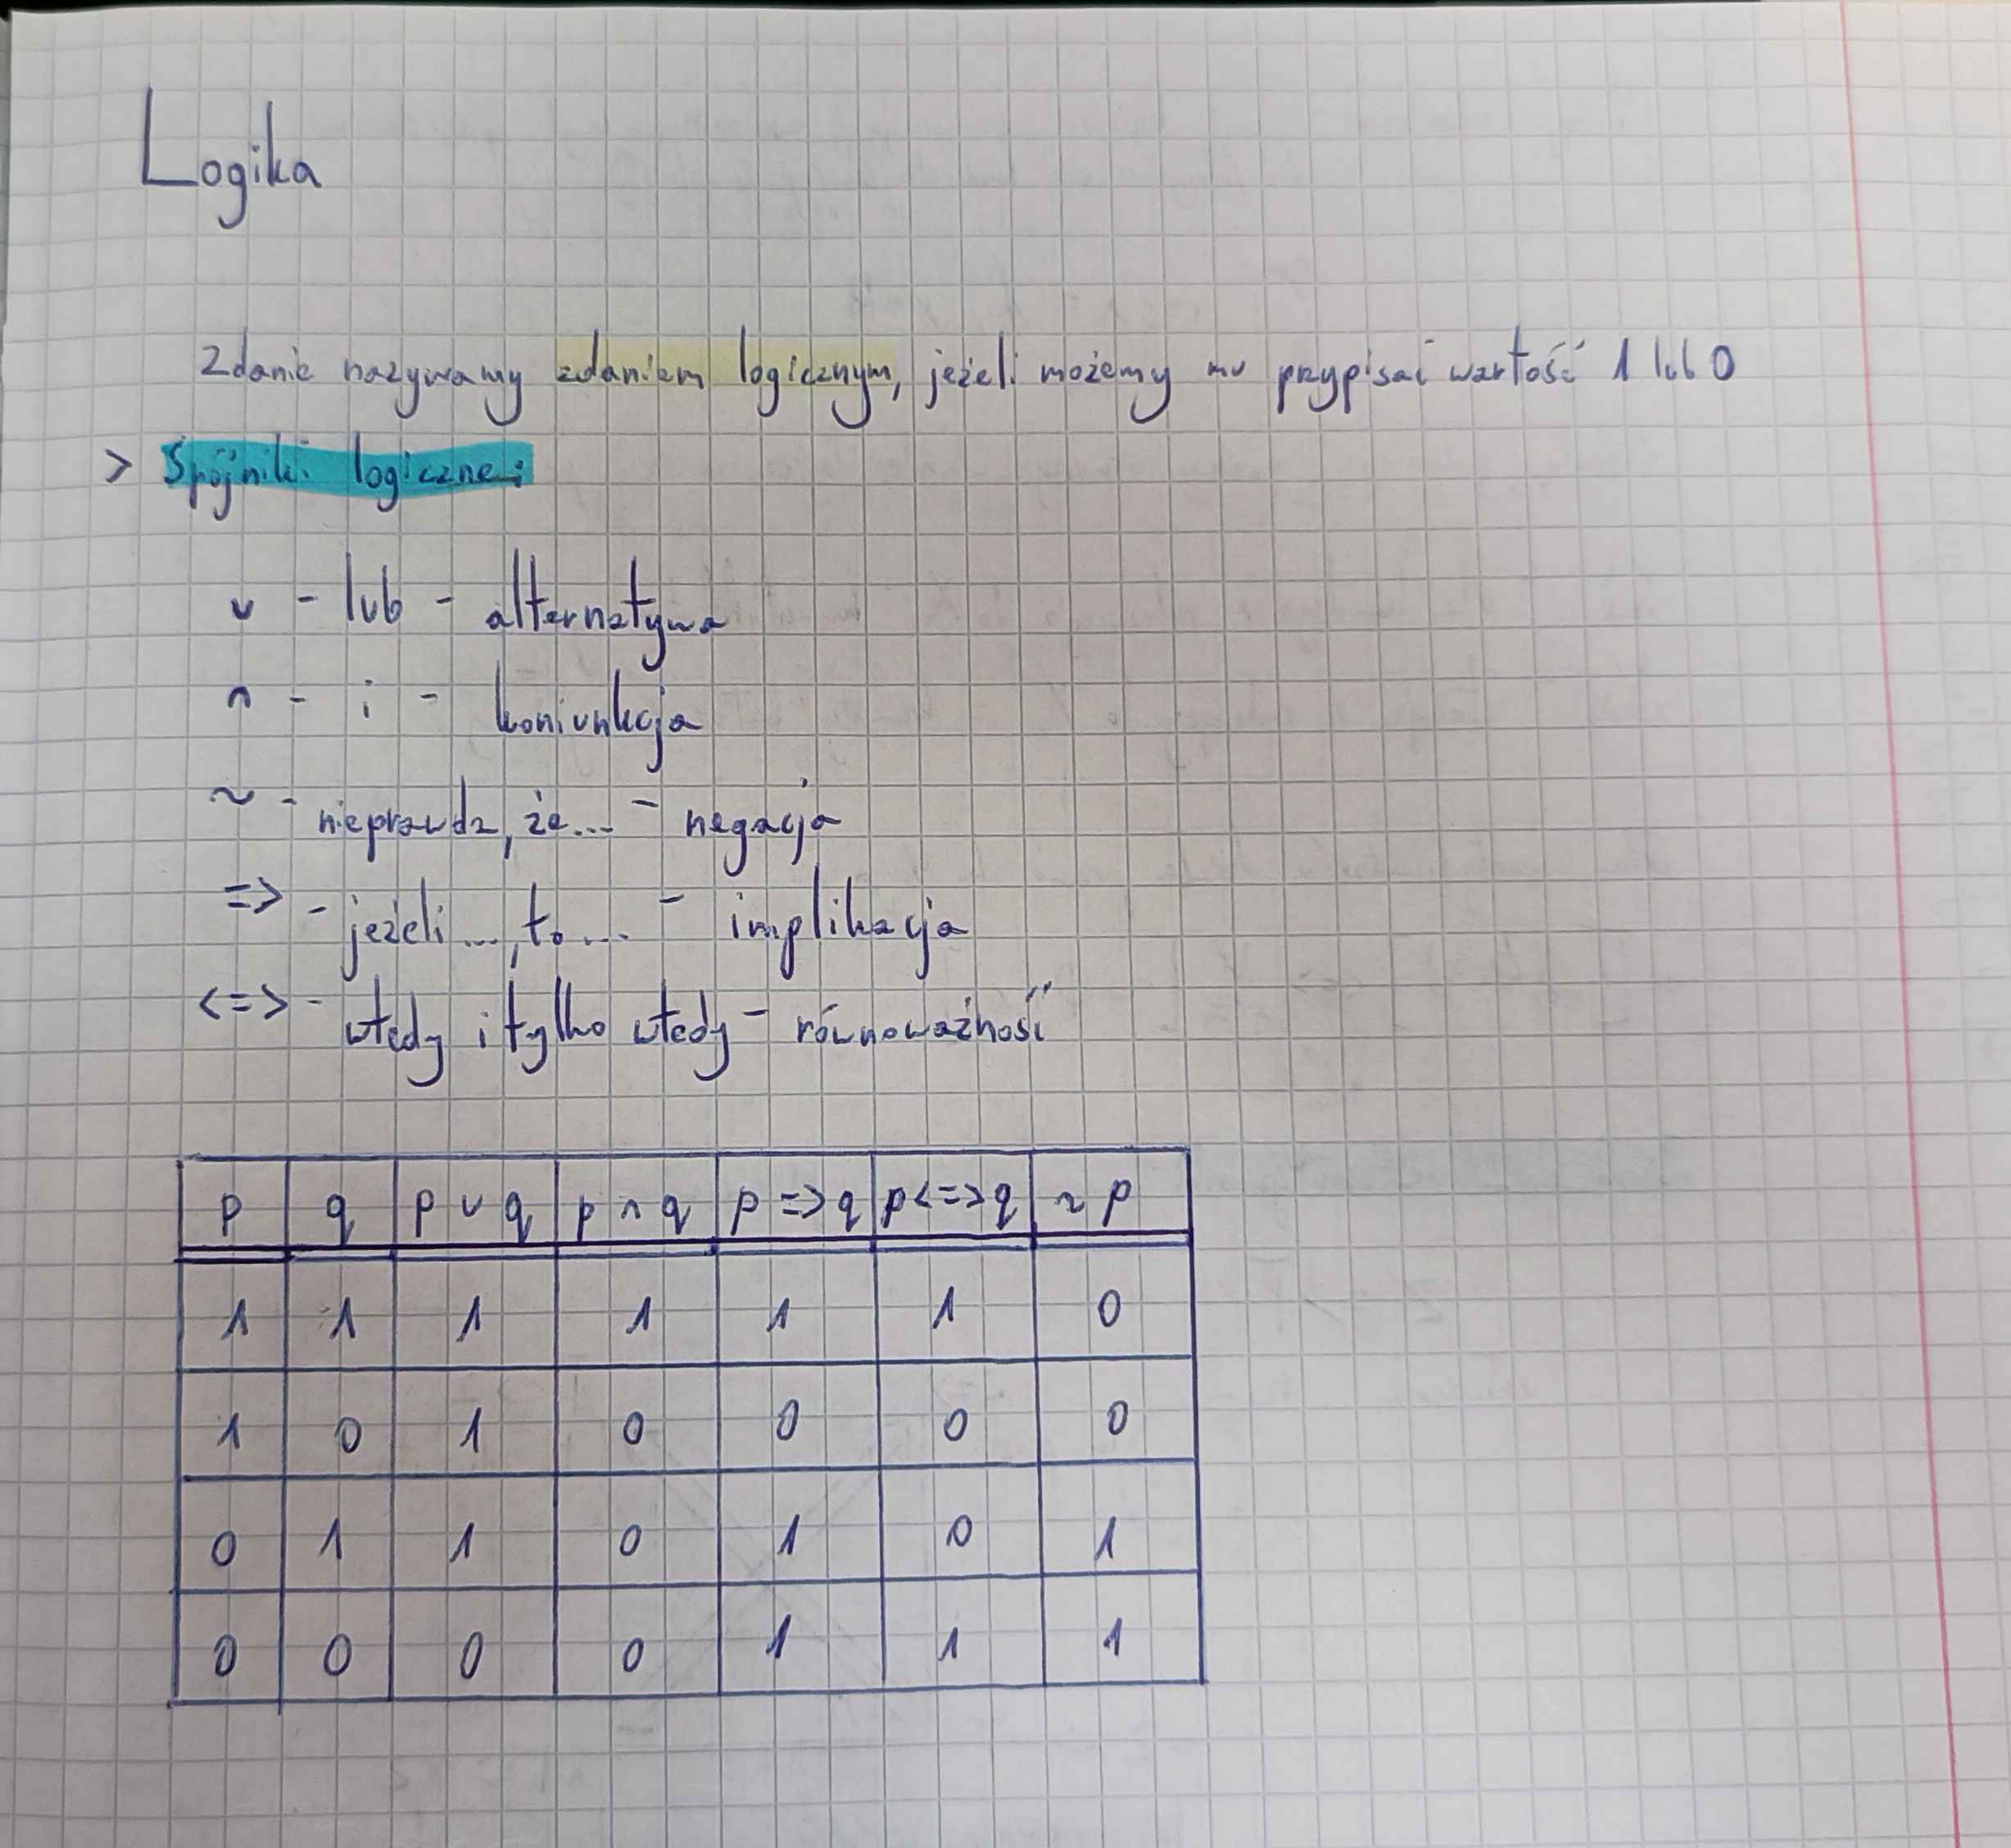 Logika
Zdanie nazywamy zdaniem logicznym, jeżeli możemy mu przypisać wartość 1 lub 0
> Spójniki logiczne:
∨ - lub - alternatywa
∧ - i - koniunkcja
~ - nieprawda, że... - negacja
=> - jeżeli ..., to ... - implikacja
<=> - wtedy i tylko wtedy - równoważność
p q p ∨ q p ∧ q p => q p <=> q ~ p
1 1 1 1 1 1 0
1 0 1 0 0 0 0
0 1 1 0 1 0 1
0 0 0 0 1 1 1